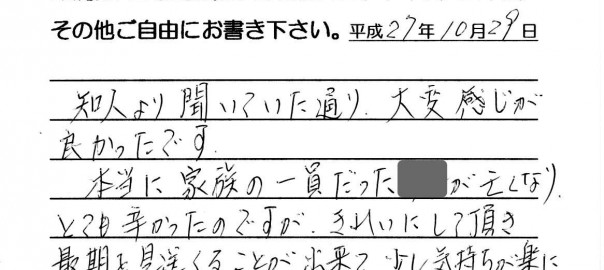 その他ご自由にお書き下さい。平成27年10月29日
知人より聞いていた通り、大変感じが
良かったです。
本当に家族の一員だったが亡くなり、
とても辛かったのですが、きれいにして頂き
最期を見送くることが出来て少し気持ちが楽に